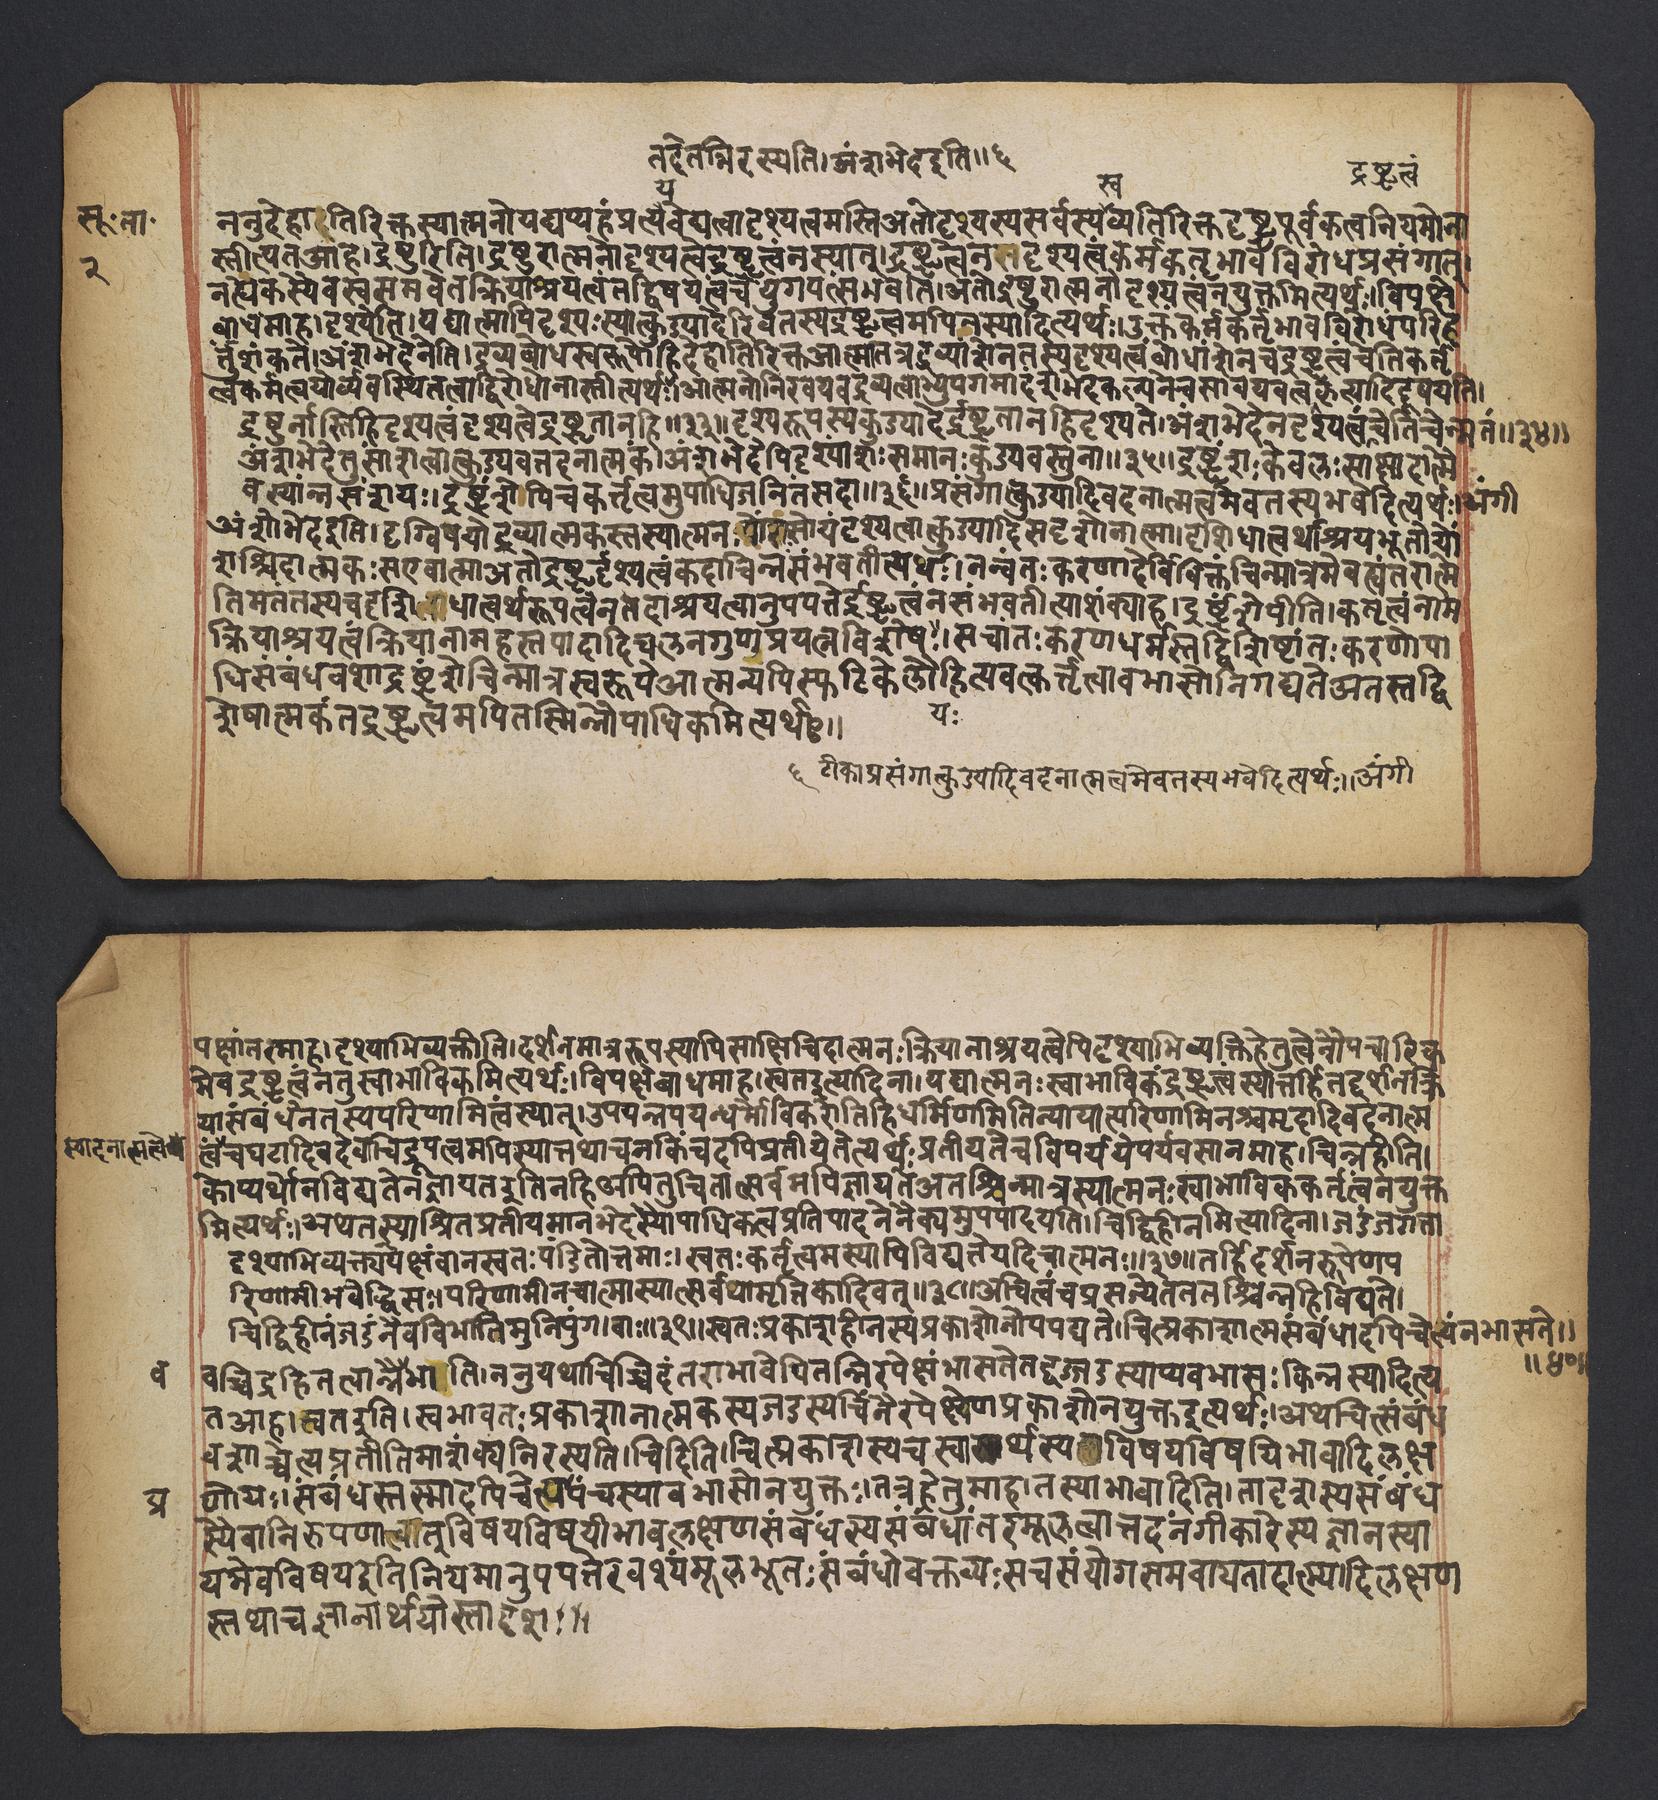 तदेतन्निरस्यति।अंशभेदइति॥६
य
स्व
द्रष्टृत्वं
सू.ता.
२
ननुदेहातिरिक्तस्यात्मनोयद्यप्यहंप्रत्यवेद्यत्वादृश्यत्वमस्तिअतोदृश्यस्यसर्वस्यव्यतिरिक्तदृष्टृपूर्वकत्वनियमोना
स्तीत्यतआह।द्रष्टुरिति।द्रष्टुरात्मनोदृश्यत्वेद्रष्टृत्वंनस्यात्।द्रष्टृत्वेनसदृश्यत्वंकर्मकर्तृभावविरोधप्रसंगात्।
नह्येकस्यैवस्वसमवेतक्रियाश्रयत्वंतद्विषयत्वंचयुगपत्संभवति।अतोद्रष्टुरात्मनोदृश्यत्वंनयुक्तमित्यर्थः।विपक्षे
बाधमाह।दृश्यतेति।यद्यात्मापिदृश्यःस्यात्कुड्यादेरिवतस्यद्रष्टृत्वमपिनस्यादित्यर्थः।उक्तंकर्मकर्तृभावविरोधंपरिह
र्तुंशंकते।अंशभेदेनेति।द्रव्यबोधस्वरूपोहिदेहातिरिक्तआत्मातत्रद्रव्यांशेनतस्यदृश्यत्वंबोधांशेनचद्रष्टृत्वंचेतिकर्तृ
त्वकर्मत्वयोर्व्यवस्थितत्वाद्विरोधोनास्तीत्यर्थः।आत्मनोनिरवयवद्रव्यत्वाभ्युपगमादंशभेदकल्पनेनसावयवत्वक्तेत्यादिदूषयति।
द्रष्टुर्नास्तिहिदृश्यत्वंदृश्यत्वेद्रष्टृतानहि॥३३॥दृश्यरूपस्यकुड्यादेर्द्रष्टृतानहिदृश्यते।अंशभेदेनदृश्यत्वंचेतिचेन्मतं॥३४॥
अंशभेदेतुसांशत्वात्कुड्यवत्तदनात्मकं।अंशभेदेपिदृश्यांशःसमानःकुड्यवस्तुना॥३५॥द्रष्ट्रंशःकेवलःसाक्षादात्मै
वस्यान्नसंशयः।द्रष्ट्रंशेपिचकर्तृत्वमुपाधिजनितंसदा॥३६॥प्रसंगात्कुड्यादिवदनात्मत्वमेवतस्यभवेदित्यर्थः।अंगी
अंशेभेदइति।दृग्विषयोद्रव्यात्मकस्तस्यात्मनःयोंशःसोयंदृश्यत्वात्कुड्यादिसदृशोनात्मा।दृशिधात्वर्थाश्रयभूतोयों
शश्चिदात्मकःसएवात्माअतोद्रष्टृर्दृश्यत्वंकदाचिन्नसंभवतीत्यर्थः।नन्वंतःकरणादेर्विविक्तंचिन्मात्रमेवत्वंतरात्मे
तिमतंतस्यचदृशिधात्वर्थरूपत्वेनतदाश्रयत्वानुपपत्तेर्द्रष्टृत्वंनसंभवतीत्याशंक्याह।द्रष्ट्रंशेपीति।कर्तृत्वंनाम
क्रियाश्रयत्वंक्रियानामहस्तपादादिचलनगुणप्रयत्नविशेषः।सचांतःकरणधर्मस्तद्विशिष्टांतःकरणोपा
धिसंबंधवशाद्रष्ट्रंशेचिन्मात्रस्वरूपेआत्मन्यपिस्फटिकेलौहित्यवत्कर्तृत्वावभासोनिगद्यतेअतस्तद्वि
शेषात्मकंतद्रष्टृत्वमपितस्मिन्नौपाधिकमित्यर्थः॥
यः
६ टीकाप्रसंगात्कुड्यादिवदनात्मत्वमेवतस्यभवेदित्यर्थः।।अंगी
पक्षांतरमाह।दृश्याभिव्यक्तीति।दर्शनमात्ररूपस्यापिसाक्षिचिदात्मनःक्रियानाश्रयत्वेपिदृश्याभिव्यक्तिहेतुत्वेनौपचारिक
मेवद्रष्टृत्वंनतुस्वाभाविकमित्यर्थः।विपक्षेबाधमाह।स्वतइत्यादिना।यद्यात्मनःस्वाभाविकंद्रष्टृत्वंस्यात्तर्हितद्दर्शनक्रि
यासंबंधेनतस्यपरिणामित्वंस्यात्।उपयन्नपयन्धर्मोविकरोतिहिधर्मिणमितिन्यायात्परिणामिनश्चमृदादिवदनात्म
त्वंचघटादिवदेवाचिद्रूपत्वमपिस्यात्तथाचनकिंचदपिप्रतीयेतेत्यर्थः।प्रतीयतेचविपर्ययेपर्यवसानमाह।चिन्नहीति।
कोप्यर्थोनविद्यतेनज्ञायतइतिनहिअपितुचितासर्वमपिज्ञायतेअतश्चिन्मात्रस्यात्मनःस्वाभाविककर्तृत्वंनयुक्त
मित्यर्थः।अथैतस्याश्रितप्रतीयमानभेदस्यौपाधिकत्वप्रतिपादनेनैक्यमुपपादयति।चिद्विहीनमित्यादिना।जडंजगत्ता
दृश्याभिव्यक्त्यपेक्षंवानस्वतःपंडितोत्तमाः।स्वतःकर्तृत्वमस्यापिविद्यतेयदिचात्मनः॥३७॥तर्हिदर्शनरूपेणप
रिणामीभवेद्धिसः।परिणामीनचात्मास्यात्सर्वथामृत्तिकादिवत्॥३८॥अचित्वंचप्रसज्येतनतश्चिन्नहिविद्यते।
चिद्विहीनंजडंनैवविभातिमुनिपुंगवाः॥३९॥स्वतःप्रकाशहीनस्यप्रकाशोनोपपद्यते।चित्प्रकाशात्मसंबंधादपिचेत्यंनभासते॥
॥४०॥
व
वच्चिद्रहितत्वान्नैभाति।ननुयथाचिच्चिदंतराभावेपितन्निरपेक्षंभासतेतद्वज्जडस्याप्यवभासःकिंनस्यादित्य
तआह।स्वतइति।स्वभावतःप्रकाशानात्मकस्यजडस्यचिंनैरपेक्ष्येणप्रकाशोनयुक्तइत्यर्थः।अथचित्संबंध
वशाच्चेत्यप्रतीतिमाशंक्यनिरस्यति।चिदिति।चित्प्रकाशस्यचस्वार्थस्यविषयविषयिभावादिलक्ष
प्र
णोयः।संबंधस्तस्मादपिचेत्यप्रपंचस्यावभासोनयुक्तः।तत्रहेतुमाह।तस्याभावादिति।तादृशस्यसंबंध
स्यैवानिरूपणात्।विषयविषयीभावलक्षणसंबंधस्यसंबंधांतरमूलत्वात्तदनंगीकारेस्यज्ञानस्या
यमेवविषयइतिनियमानुपपत्तेरवश्यंमूलभूतःसंबंधोवक्तव्यःसचसंयोगसमवायतादात्म्यादिलक्षण
स्तथाचज्ञानार्थयोस्तादृश।॥